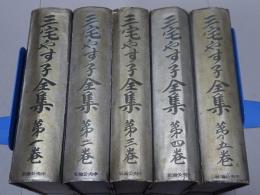 三宅やす子全集
第一巻
三宅やす子全集
第二巻
三宅やす子全集
第三巻
三宅やす子全集
第四巻
三宅やす子全集
第五巻